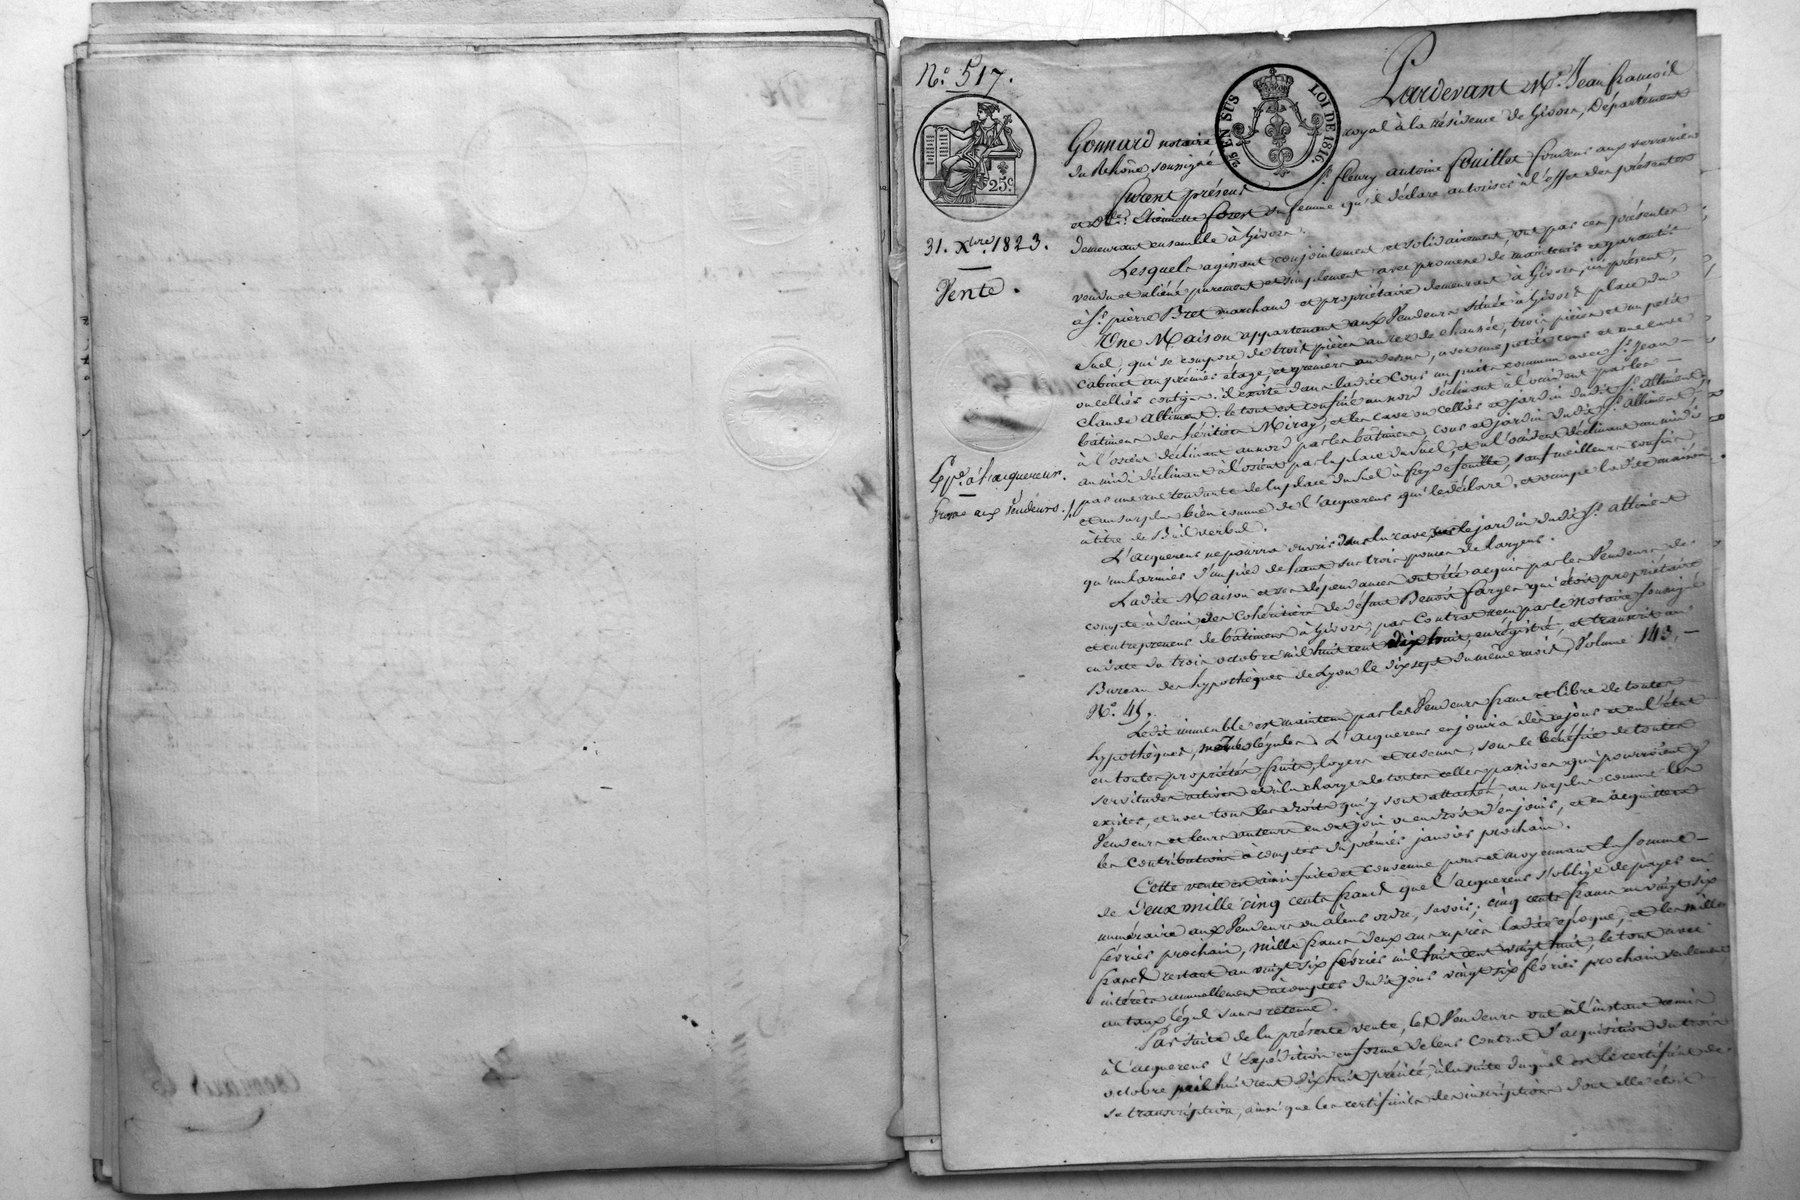 N.o 517.
25c.
EN SUS
LOI DE 1816.
31. Xbre 1823.
Vente.
Exp.e à l'acquereur.
Grosse aux Vendeurs./.
Pardevant M.e Jean françois
Gonnard notaire royal à la résidence de Givors, Département
du Rhône soussigné
Furent présens S.r fleury antoine fouillet fondeur aux verreries
et D.e Etiennette forest sa femme qu'il déclare autoriser à l'effet des présentes
demeurant ensemble à Givors.
Lesquels agissant conjointement et solidairement, ont par ces présentes
vendu et aliéné purement et simplement avec promesse de maintenir et garantir
à S.r pierre Bret marchand et propriétaire demeurant à Givors, ici présent,
Une Maison appartenant aux Vendeurs située à Givors place du
Suel, qui se compose de trois pièces au rez de chaussée, trois pièces et un petit
cabinet au premier étage, et greniers au dessus, avec une petite cour et une cave
ou cellier contigu. il existe dans ladite Cour un puits commun avec S.r Jean-
claude alliment. le tout est confiné au nord déclinant à l'occident par les
bâtimens des héritiers Miray, et les cave ou cellier et jardin dudit S.r alliment
à l'orient déclinant au nord par les bâtiment, cour et jardin dudit S.r alliment,
au midi déclinant à l'orient par la place du Suel, et à l'occident déclinant au midi
par une rue tendante de la place du Suel à
et au surplus bien connue de l'acquereur qui le déclare, et occupe ladite maison
à titre de Bail verbal.
L'acquereur ne pourra ouvrir dans la cave, sur le jardin dudit S.r alliment
qu'un larmier d'un pied de haut sur trois pouces de largeur.
Ladite Maison et ses dépendances ont été acquis par les Vendeurs de
compte à demi des Cohéritiers de défunt Benoit farges qui étoit propriétaire
et entrepreneur de bâtimens à Givors, par Contrat reçu par le Notaire soussigné
en date du trois octobre mil huit cent dix huit, enregistré, et transcrit au
Bureau des hypothèques de Lyon le dix sept du même mois, Volume 143,
N.o 45.
Ledit immeuble est maintenu par les Vendeurs franc et libre de toutes
hypothèques, même légales. L'acquereur en jouira dès ce jour et en l'état
en toutes propriétés, fruits, loyers et revenus, sous le bénéfice de toutes
servitudes actives et à la charge de toutes celles passives qui pourroient y
exister, et avec tous les droits qui y sont attachés, au surplus comme les
Vendeurs et leurs auteurs en ont joui ou eu droit d'en jouir, et en acquittera
les contributions à compter du premier janvier prochain.
Cette vente est ainsi faite et convenue pour et moyennant la somme
de Deux mille cinq cents francs que l'acquereur s'oblige de payer en
numéraire aux Vendeurs ou à leur ordre, savoir: cinq cents francs au vingt six
février prochain, mille francs deux ans après ladite époque, et les mille
francs restant au vingt six février mil huit cent vingt huit, le tout avec
intérêts annuellement à compter dudit jour vingt six février prochain seulement
au taux légal sans retenue.
Par suite de la présente vente, les Vendeurs ont à l'instant remis
à l'acquereur l'Expédition en forme de leur contrat d'acquisition du trois
octobre mil huit cent dix huit précité, à la suite duquel est le certificat de
sa transcription, ainsi que les certificats des inscriptions dont elle étoit